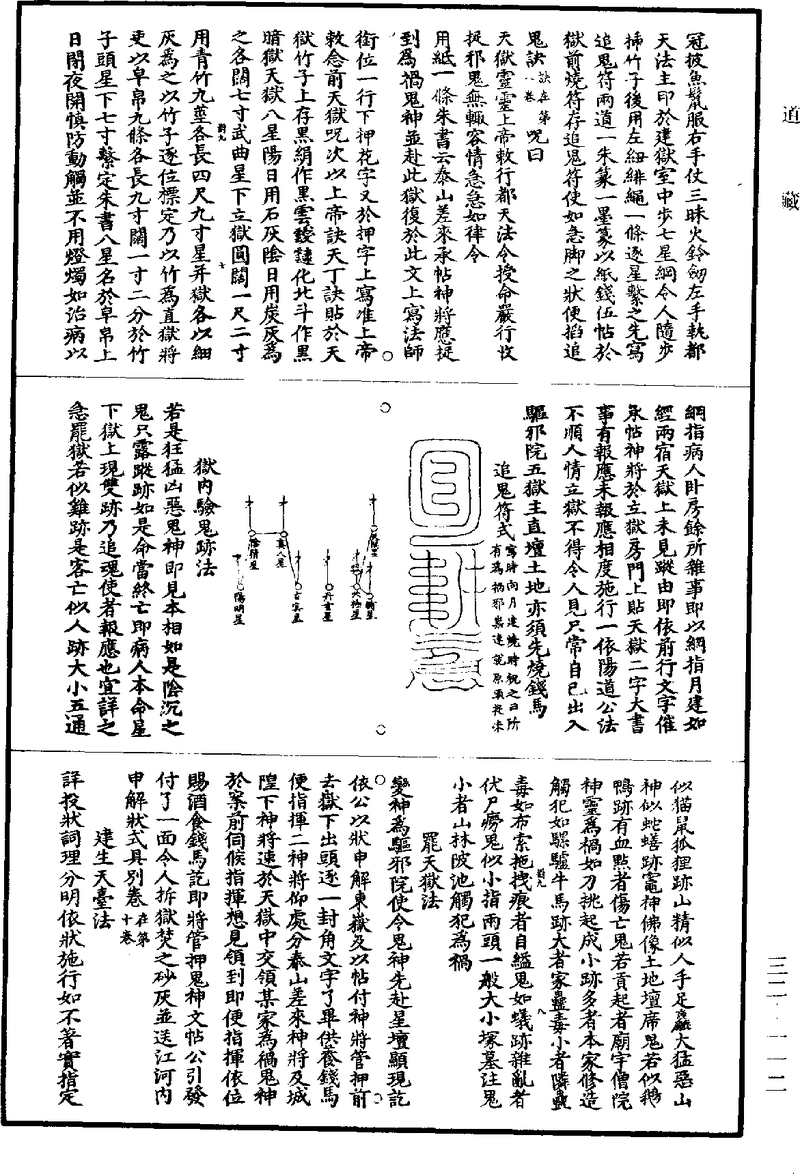 道藏
冠披魚鬣服右手仗三昧火鈴劒左手執都
天法主印於建獄室中步七星綱令人隨步
揷竹子後用左紐緋繩一條逐星繫之先寫
追鬼符兩道一朱篆一墨篆以紙錢伍帖於
獄前燒符存追鬼符使如急脚之狀便掐追
鬼訣訣在第八卷呪曰
天獄靈靈上帝敕行都天法令授命嚴行收
捉邪鬼無輙容情急急如律令
用紙一條朱書云泰山差來承帖神將應捉
到爲禍鬼神並赴此獄復於此文上寫法師
銜位一行下押花字又於押字上寫准上帝
敕念前天獄呪次以上帝訣天丁訣貼於天
獄竹子上存黑絹作黑雲靉靆化北斗作黑
暗獄天獄八星陽日用石灰陰日用炭灰爲
之各闊七寸武曲星下立獄圓闊一尺二寸
用青竹九莖各長四尺九寸星并獄各以細
灰爲之以竹子逐位標定乃以竹爲直獄將
吏以皁帛九條各長九寸闊一寸二分於竹
子頭星下七寸繫定朱書八星名於皁帛上
日閉夜開慎防動觸並不用燈燭如治病以
綱指病人卧房餘所雜事即以綱指月建如
經兩宿天獄上未見蹤由即依前行文字催
承帖神將於立獄房門上貼天獄二字大書
事有報應未報應相度施行一依陽道公法
不順人情立獄不得令人見只常自己出入
驅邪院五獄主直壇土地亦須先燒錢馬
追鬼符式
獄內驗鬼跡法
若是狂猛凶惡鬼神即見本相如是陰沉之
鬼只露蹤跡如是命當終亡即病人本命星
下獄上現雙跡乃追魂使者報應也宜詳之
急罷獄若似雞跡是客亡似人跡大小五通
似猫鼠狐狸跡山精似人手足麄大猛惡山
神似蛇蟮跡竈神佛像土地壇席鬼若似鵝
鴨跡有血點者傷亡鬼若貢起者廟宇僧院
神靈爲禍如刀挑起成小跡多者本家修造
觸犯如騾驢牛馬跡大者家蠱毒小者隣蠱
毒如布索拖拽痕者自縊鬼如蟻跡雜亂者
伏尸癆鬼似小指兩頭一般大小塚墓注鬼
小者山林陂池觸犯爲禍
罷天獄法
變神爲驅邪院使令鬼神先赴星壇顯現訖
依公以狀申解東嶽及以帖付神將管押前
去嶽下出頭逐一封角文字了畢供養錢馬
便指揮二神將仰處分泰山差來神將及城
隍下神將速於天獄中交領某家爲禍鬼神
於案前伺候指揮想見領到即便指揮依位
賜酒食錢馬訖即將管押鬼神文帖公引發
付了一面令人拆獄焚之砂灰並送江河內
申解狀式具別卷在第十卷
建生天臺法
詳投狀詞理分明依狀施行如不著實指定
三二·一一二